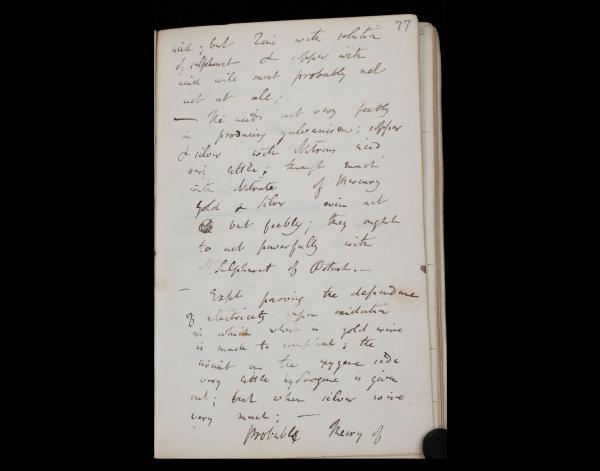 77
acid; but Zinc with solution
of sulphuret & copper with
acid will most probably not
act at all;
— The acids act very feebly
in producing galvanism; copper
& silver with Nitrous acid
very little; though much
with Nitrate of Mercury
Gold & silver even act
but feebly; they ought
to act powerfully with
Sulphuret of Potash. —
— Expt proving the dependence
of electricity upon oxidation
in which when a gold wire
is made to compleat; the
circuit on the oxygene side
very little hydrogene is given
out; but when silver wire
very much; —
Probable Theory of